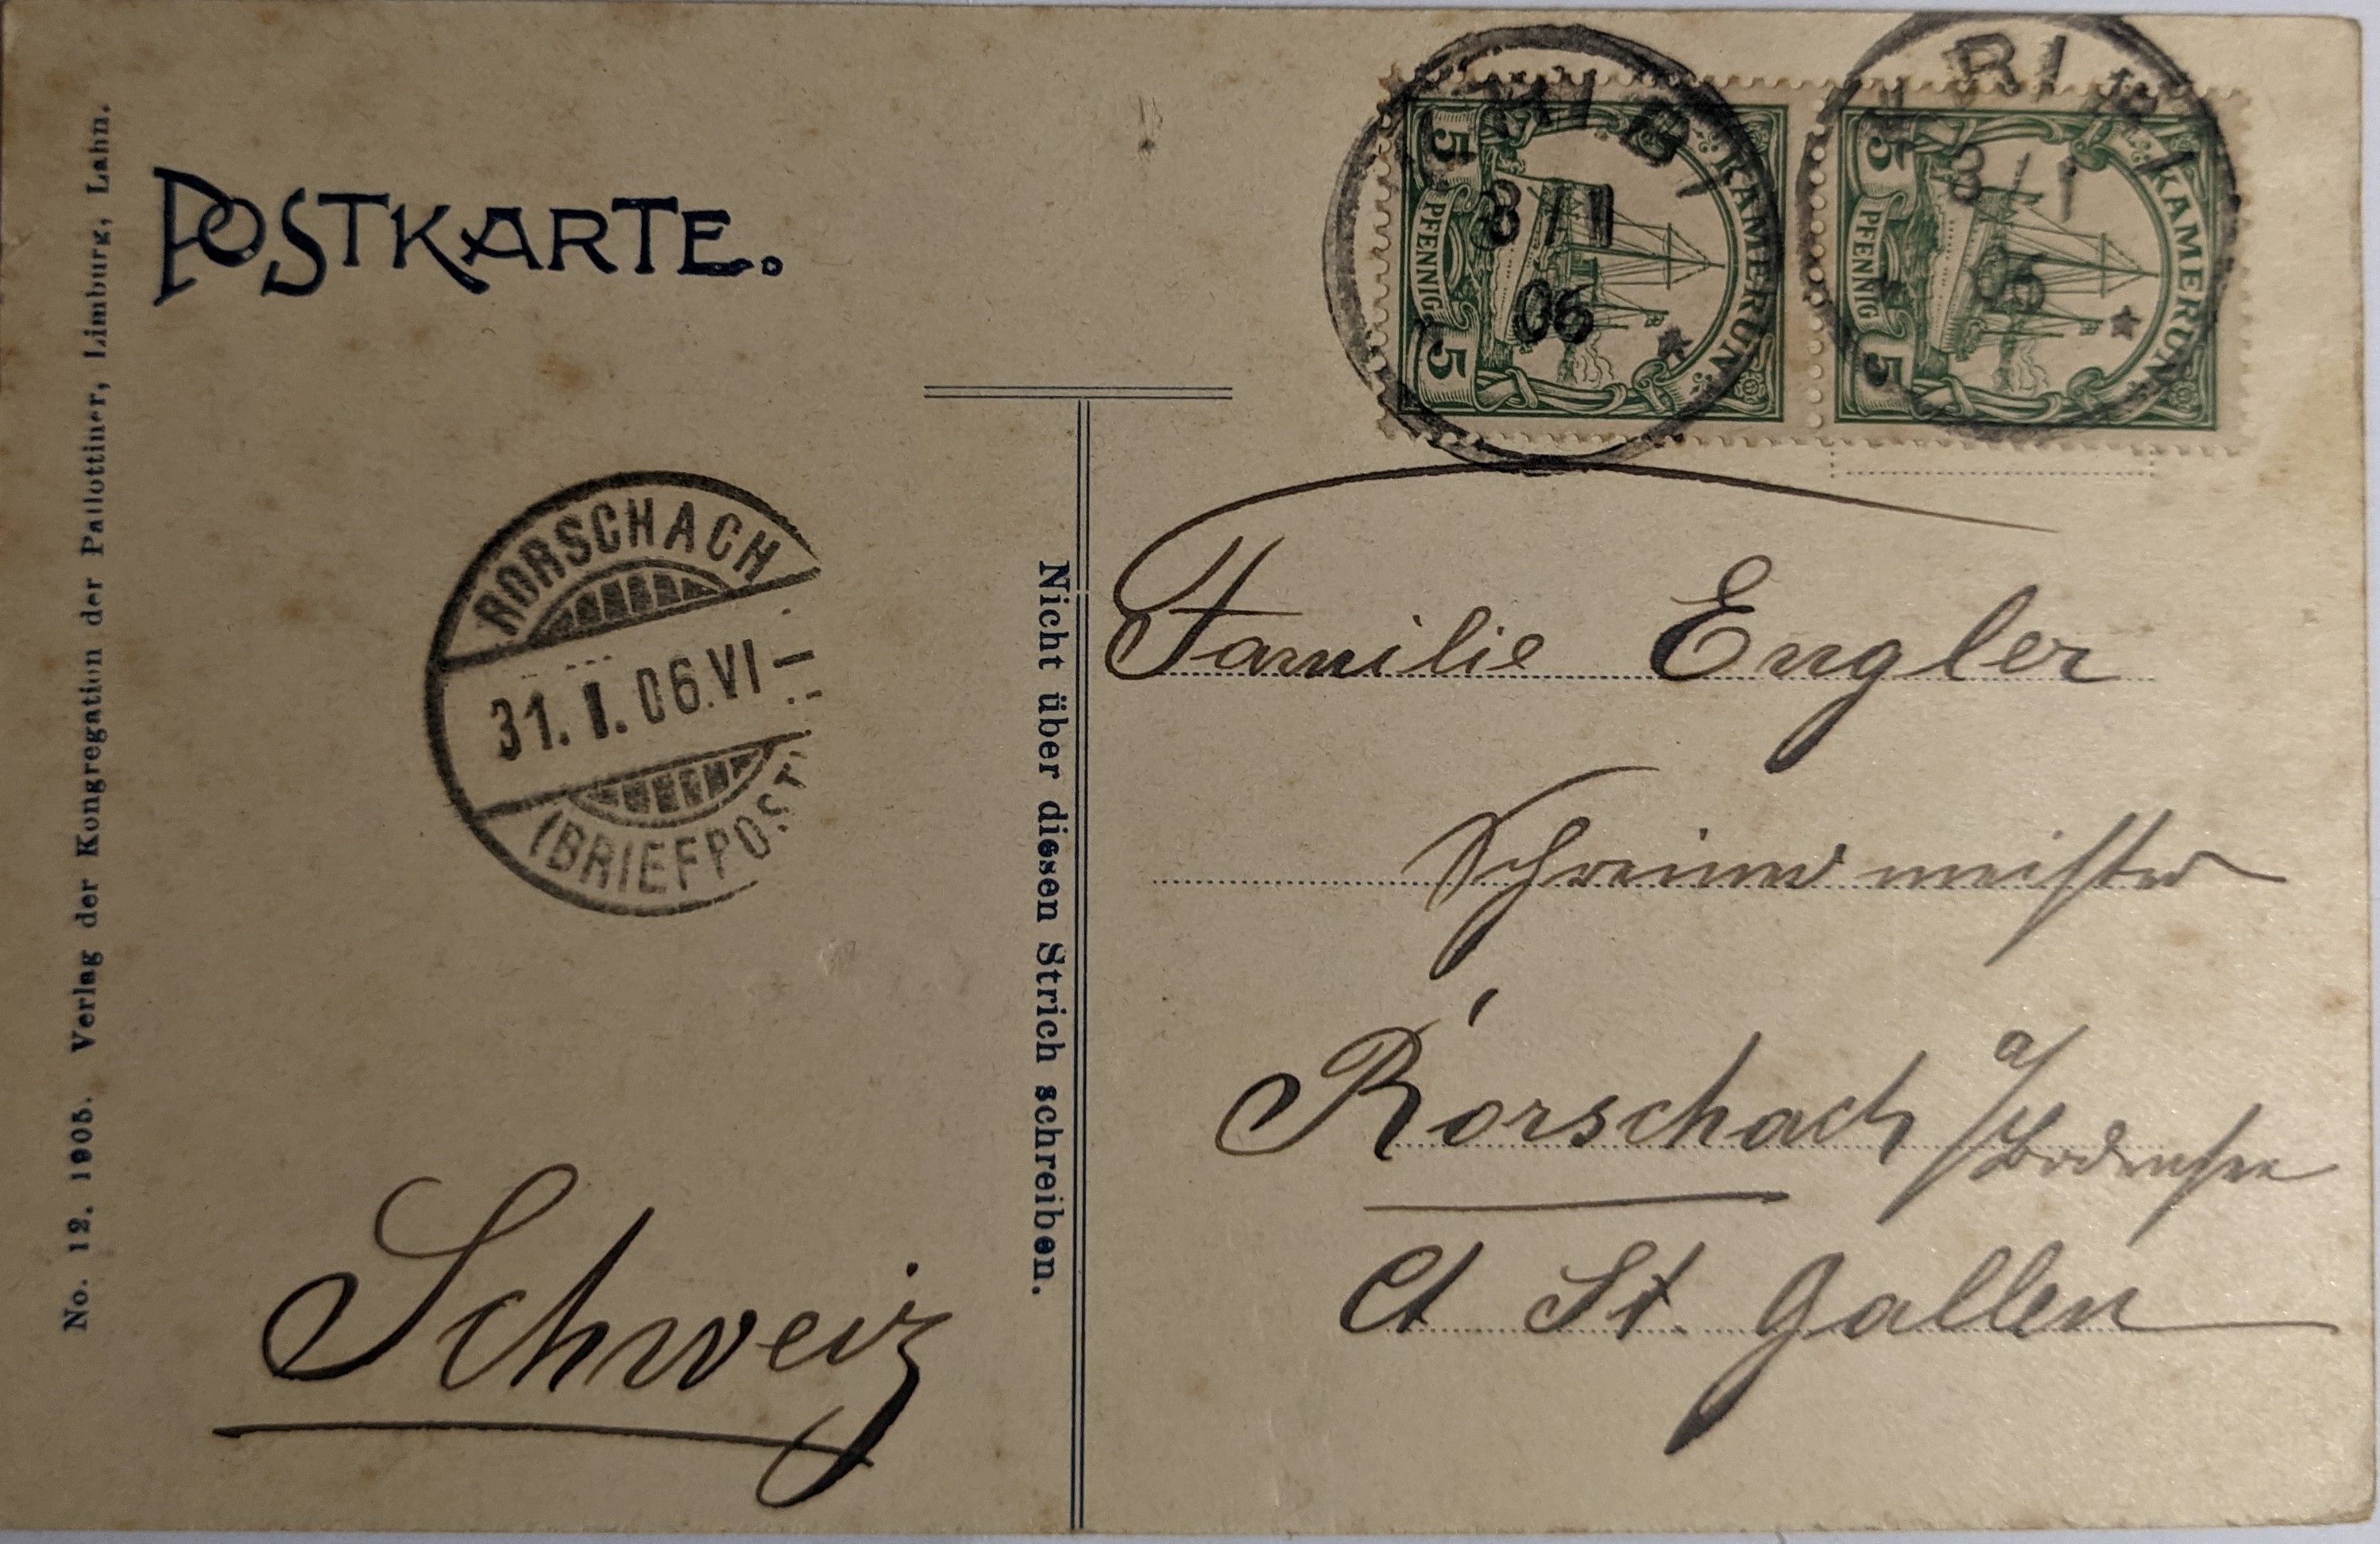 No. 12. 1905. Verlag der Kongregation der Pallottiner, Limburg, Lahn.
POSTKARTE.
KAMERUN
5 PFENNIG 5
KAMERUN
5 PFENNIG 5
KRIBI
8/1
06
*
KRIBI
8/1
06
*
RORSCHACH
31. I. 06. VI–
(BRIEFPOST)
Nicht über diesen Strich schreiben.
Familie Engler
Schreinermeister
Rorschach a/Bodensee
Ct St. Gallen
Schweiz